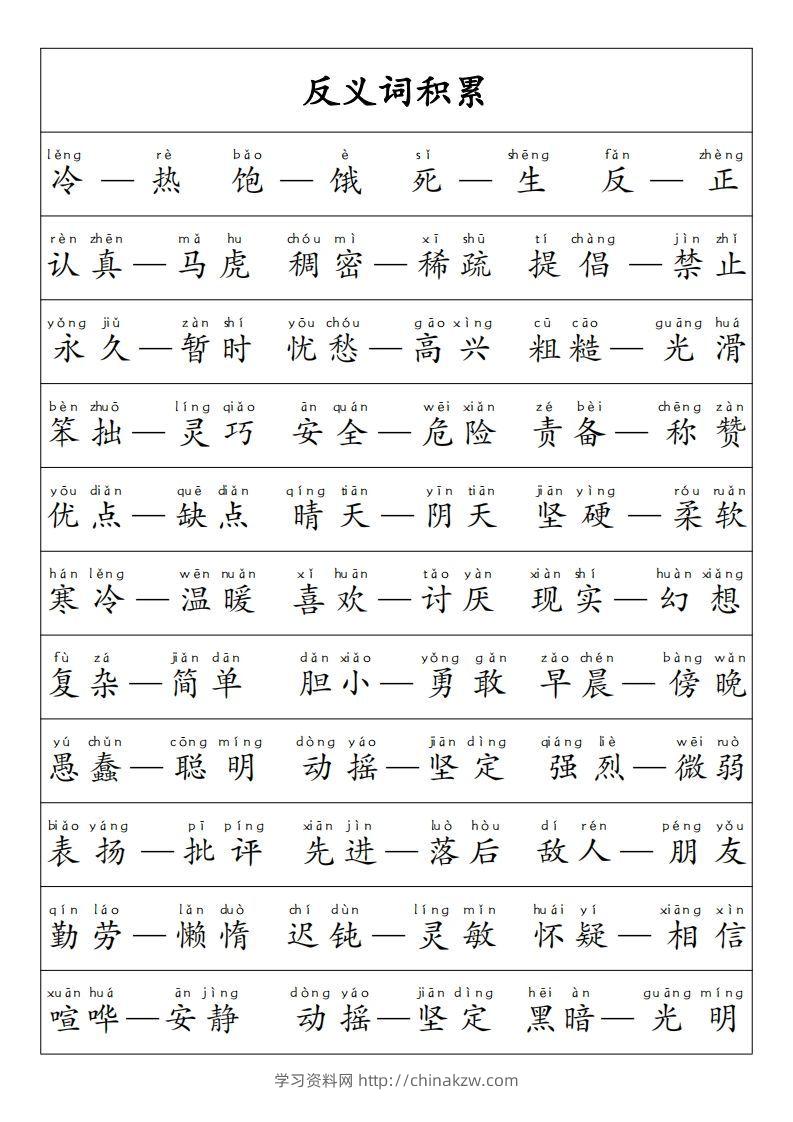 反义词积累
lěng rè bǎo è sǐ shēng fǎn zhèng
冷 — 热 饱 — 饿 死 — 生 反 — 正
rèn zhēn mǎ hu chóu mì xī shū tí chàng jìn zhǐ
认真 — 马虎 稠密 — 稀疏 提倡 — 禁止
yǒng jiǔ zàn shí yōu chóu gāo xìng cū cāo guāng huá
永久 — 暂时 忧愁 — 高兴 粗糙 — 光滑
bèn zhuō líng qiǎo ān quán wēi xiǎn zé bèi chēng zàn
笨拙 — 灵巧 安全 — 危险 责备 — 称赞
yōu diǎn quē diǎn qíng tiān yīn tiān jiān yìng róu ruǎn
优点 — 缺点 晴天 — 阴天 坚硬 — 柔软
hán lěng wēn nuǎn xǐ huān tǎo yàn xiàn shí huàn xiǎng
寒冷 — 温暖 喜欢 — 讨厌 现实 — 幻想
fù zá jiǎn dān dǎn xiǎo yǒng gǎn zǎo chén bàng wǎn
复杂 — 简单 胆小 — 勇敢 早晨 — 傍晚
yú chǔn cōng míng dòng yáo jiān dìng qiáng liè wēi ruò
愚蠢 — 聪明 动摇 — 坚定 强烈 — 微弱
biǎo yáng pī píng xiān jìn luò hòu dí rén péng yǒu
表扬 — 批评 先进 — 落后 敌人 — 朋友
qín láo lǎn duò chí dùn líng mǐn huái yí xiāng xìn
勤劳 — 懒惰 迟钝 — 灵敏 怀疑 — 相信
xuān huá ān jìng dòng yáo jiān dìng hēi àn guāng míng
喧哗 — 安静 动摇 — 坚定 黑暗 — 光明
学习资料网 http://chinakzw.com